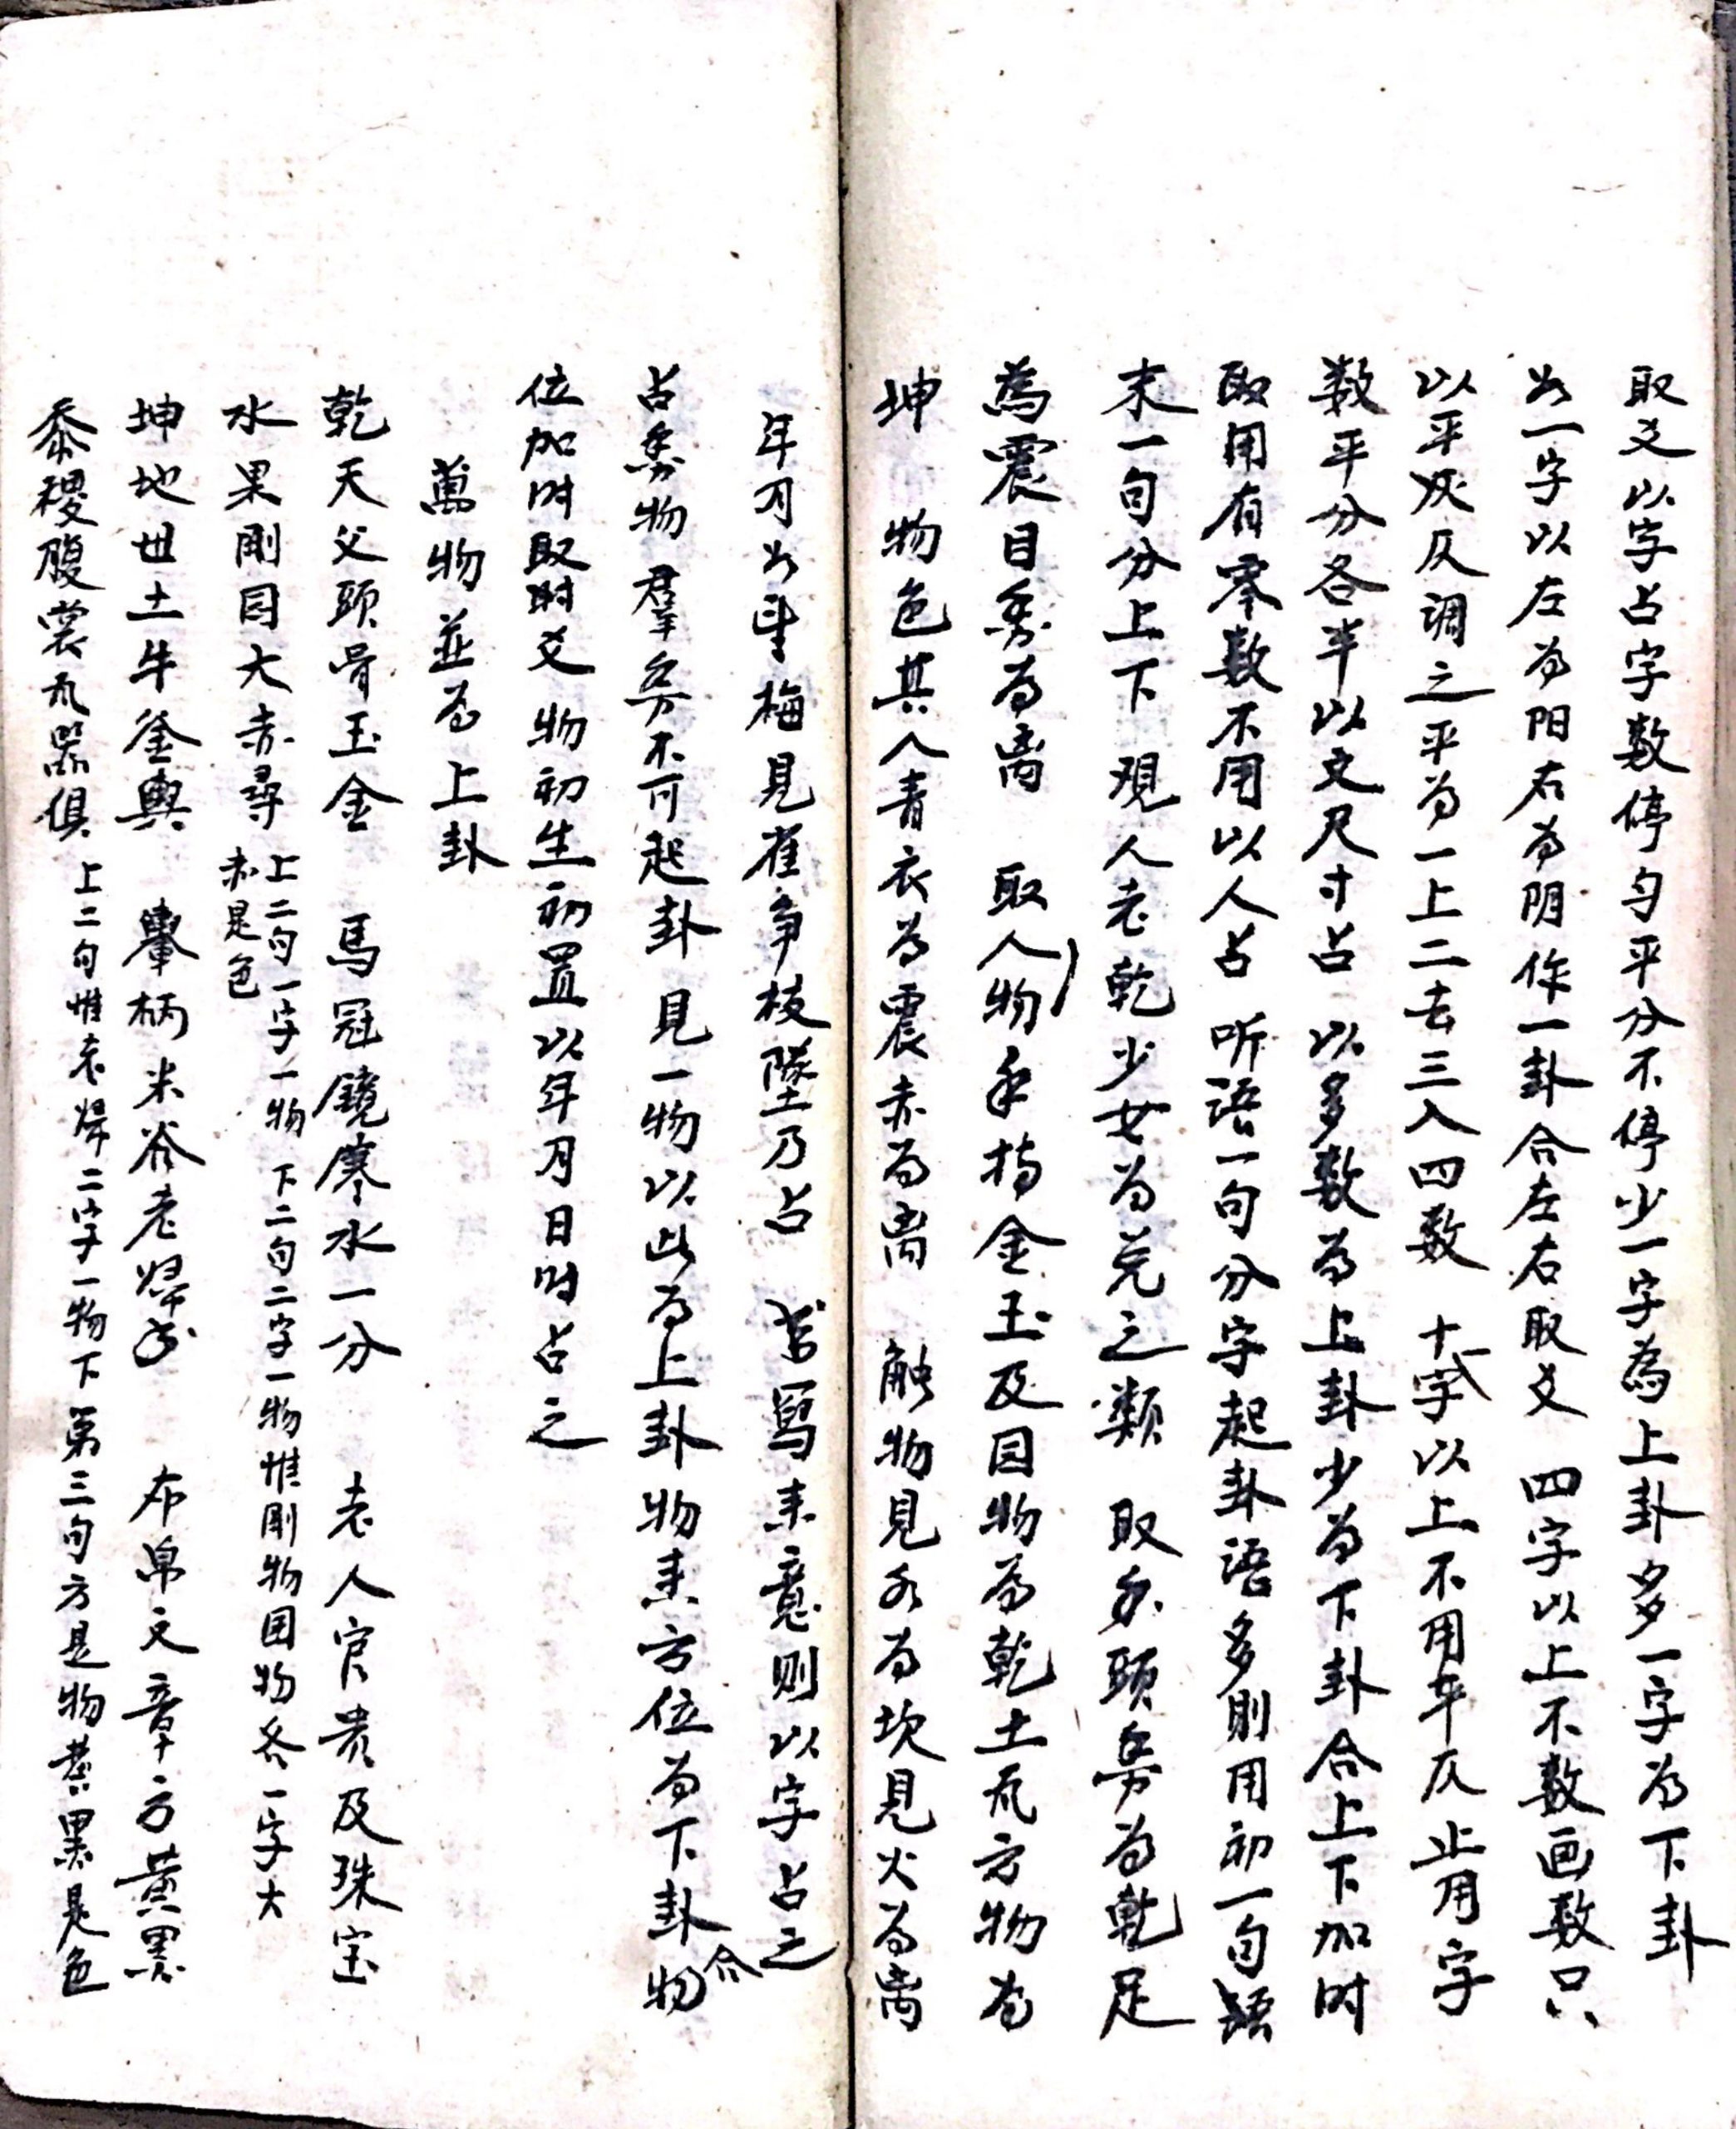 取爻以字占字数停匀平分不停少一字為上卦多一字为下卦
如一字以左为阳右为阴作一卦合左右取爻　四字以上不数画数只
以平仄调之平为一上二去三入四数　十一字以上不用平仄止用字
数平分各半以丈尺寸占　以多数为上卦少为下卦合上下加时
取用有零数不用以人占　听语一句分字起卦语多則用初一句
末一句分上下观人老乾少女为兑之類　取身頭为乾足
為震目为离　取人物手持金玉及园物为乾土瓦方物为
坤　物色其人青衣为震赤为离　触物見水为坎見火为离
年月如見梅見雀争枝墜乃占　写来意则以字占之
占物羣不可起卦見一物以此为上卦物来方位为下卦合物
位加时取时爻物初生初置以年月日时占之
萬物並为上卦
乾天父頭骨玉金　馬冠鏡寒水一分　老人官贵及珠宝
水果剛园大赤尋　上二句一字一物　下二句二字一物惟剛物园物各一字大
赤是色
坤地母土牛釜輿　轝柄米谷老婦　布帛文章方黄黑
黍稷腹裳瓦器俱　上二句惟老婦二字一物下第三句方是物黄黑是色